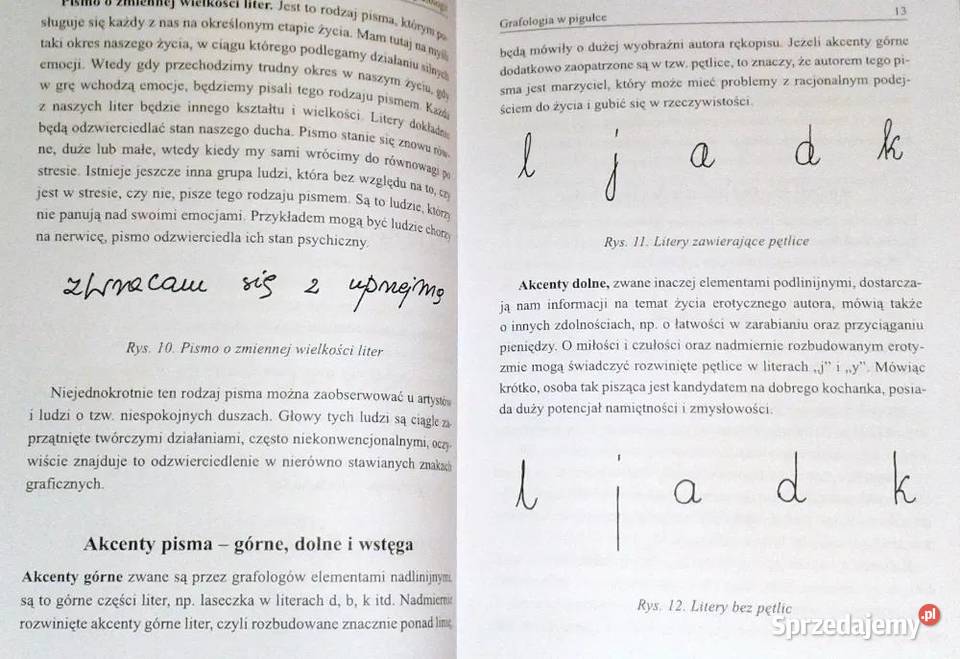 Pismo o zmiennej wielkości liter. Jest to rodzaj pisma, którym po-
sługuje się każdy z nas na określonym etapie życia. Mam tutaj na myśli
taki okres naszego życia, w ciągu którego podlegamy działaniu silnych
emocji. Wtedy gdy przechodzimy trudny okres w naszym życiu, gdy
w grę wchodzą emocje, będziemy pisali tego rodzaju pismem. Każda
z naszych liter będzie innego kształtu i wielkości. Litery dokładnie
będą odzwierciedlać stan naszego ducha. Pismo stanie się znowu rów-
ne, duże lub małe, wtedy kiedy my sami wrócimy do równowagi po
stresie. Istnieje jeszcze inna grupa ludzi, która bez względu na to, czy
jest w stresie, czy nie, pisze tego rodzaju pismem. Są to ludzie, którzy
nie panują nad swoimi emocjami. Przykładem mogą być ludzie chorzy
na nerwicę, pismo odzwierciedla ich stan psychiczny.
zwracam się z uprzejmą
Rys. 10. Pismo o zmiennej wielkości liter
Niejednokrotnie ten rodzaj pisma można zaobserwować u artystów
i ludzi o tzw. niespokojnych duszach. Głowy tych ludzi są ciągle za-
przątnięte twórczymi działaniami, często niekonwencjonalnymi, oczy-
wiście znajduje to odzwierciedlenie w nierówno stawianych znakach
graficznych.
Akcenty pisma – górne, dolne i wstęga
Akcenty górne zwane są przez grafologów elementami nadlinijnymi,
są to górne części liter, np. laseczka w literach d, b, k itd. Nadmiernie
rozwinięte akcenty górne liter, czyli rozbudowane znacznie ponad linię,
Grafologia w pigułce 13
będą mówiły o dużej wyobraźni autora rękopisu. Jeżeli akcenty górne
dodatkowo zaopatrzone są w tzw. pętlice, to znaczy, że autorem tego pi-
sma jest marzyciel, który może mieć problemy z racjonalnym podej-
ściem do życia i gubić się w rzeczywistości.
l j a d k
Rys. 11. Litery zawierające pętlice
Akcenty dolne, zwane inaczej elementami podlinijnymi, dostarcza-
ją nam informacji na temat życia erotycznego autora, mówią także
o innych zdolnościach, np. o łatwości w zarabianiu oraz przyciąganiu
pieniędzy. O miłości i czułości oraz nadmiernie rozbudowanym eroty-
zmie mogą świadczyć rozwinięte pętlice w literach „j” i „y”. Mówiąc
krótko, osoba tak pisząca jest kandydatem na dobrego kochanka, posia-
da duży potencjał namiętności i zmysłowości.
l j a d k
Rys. 12. Litery bez pętlic
Sprzedajemy.pl